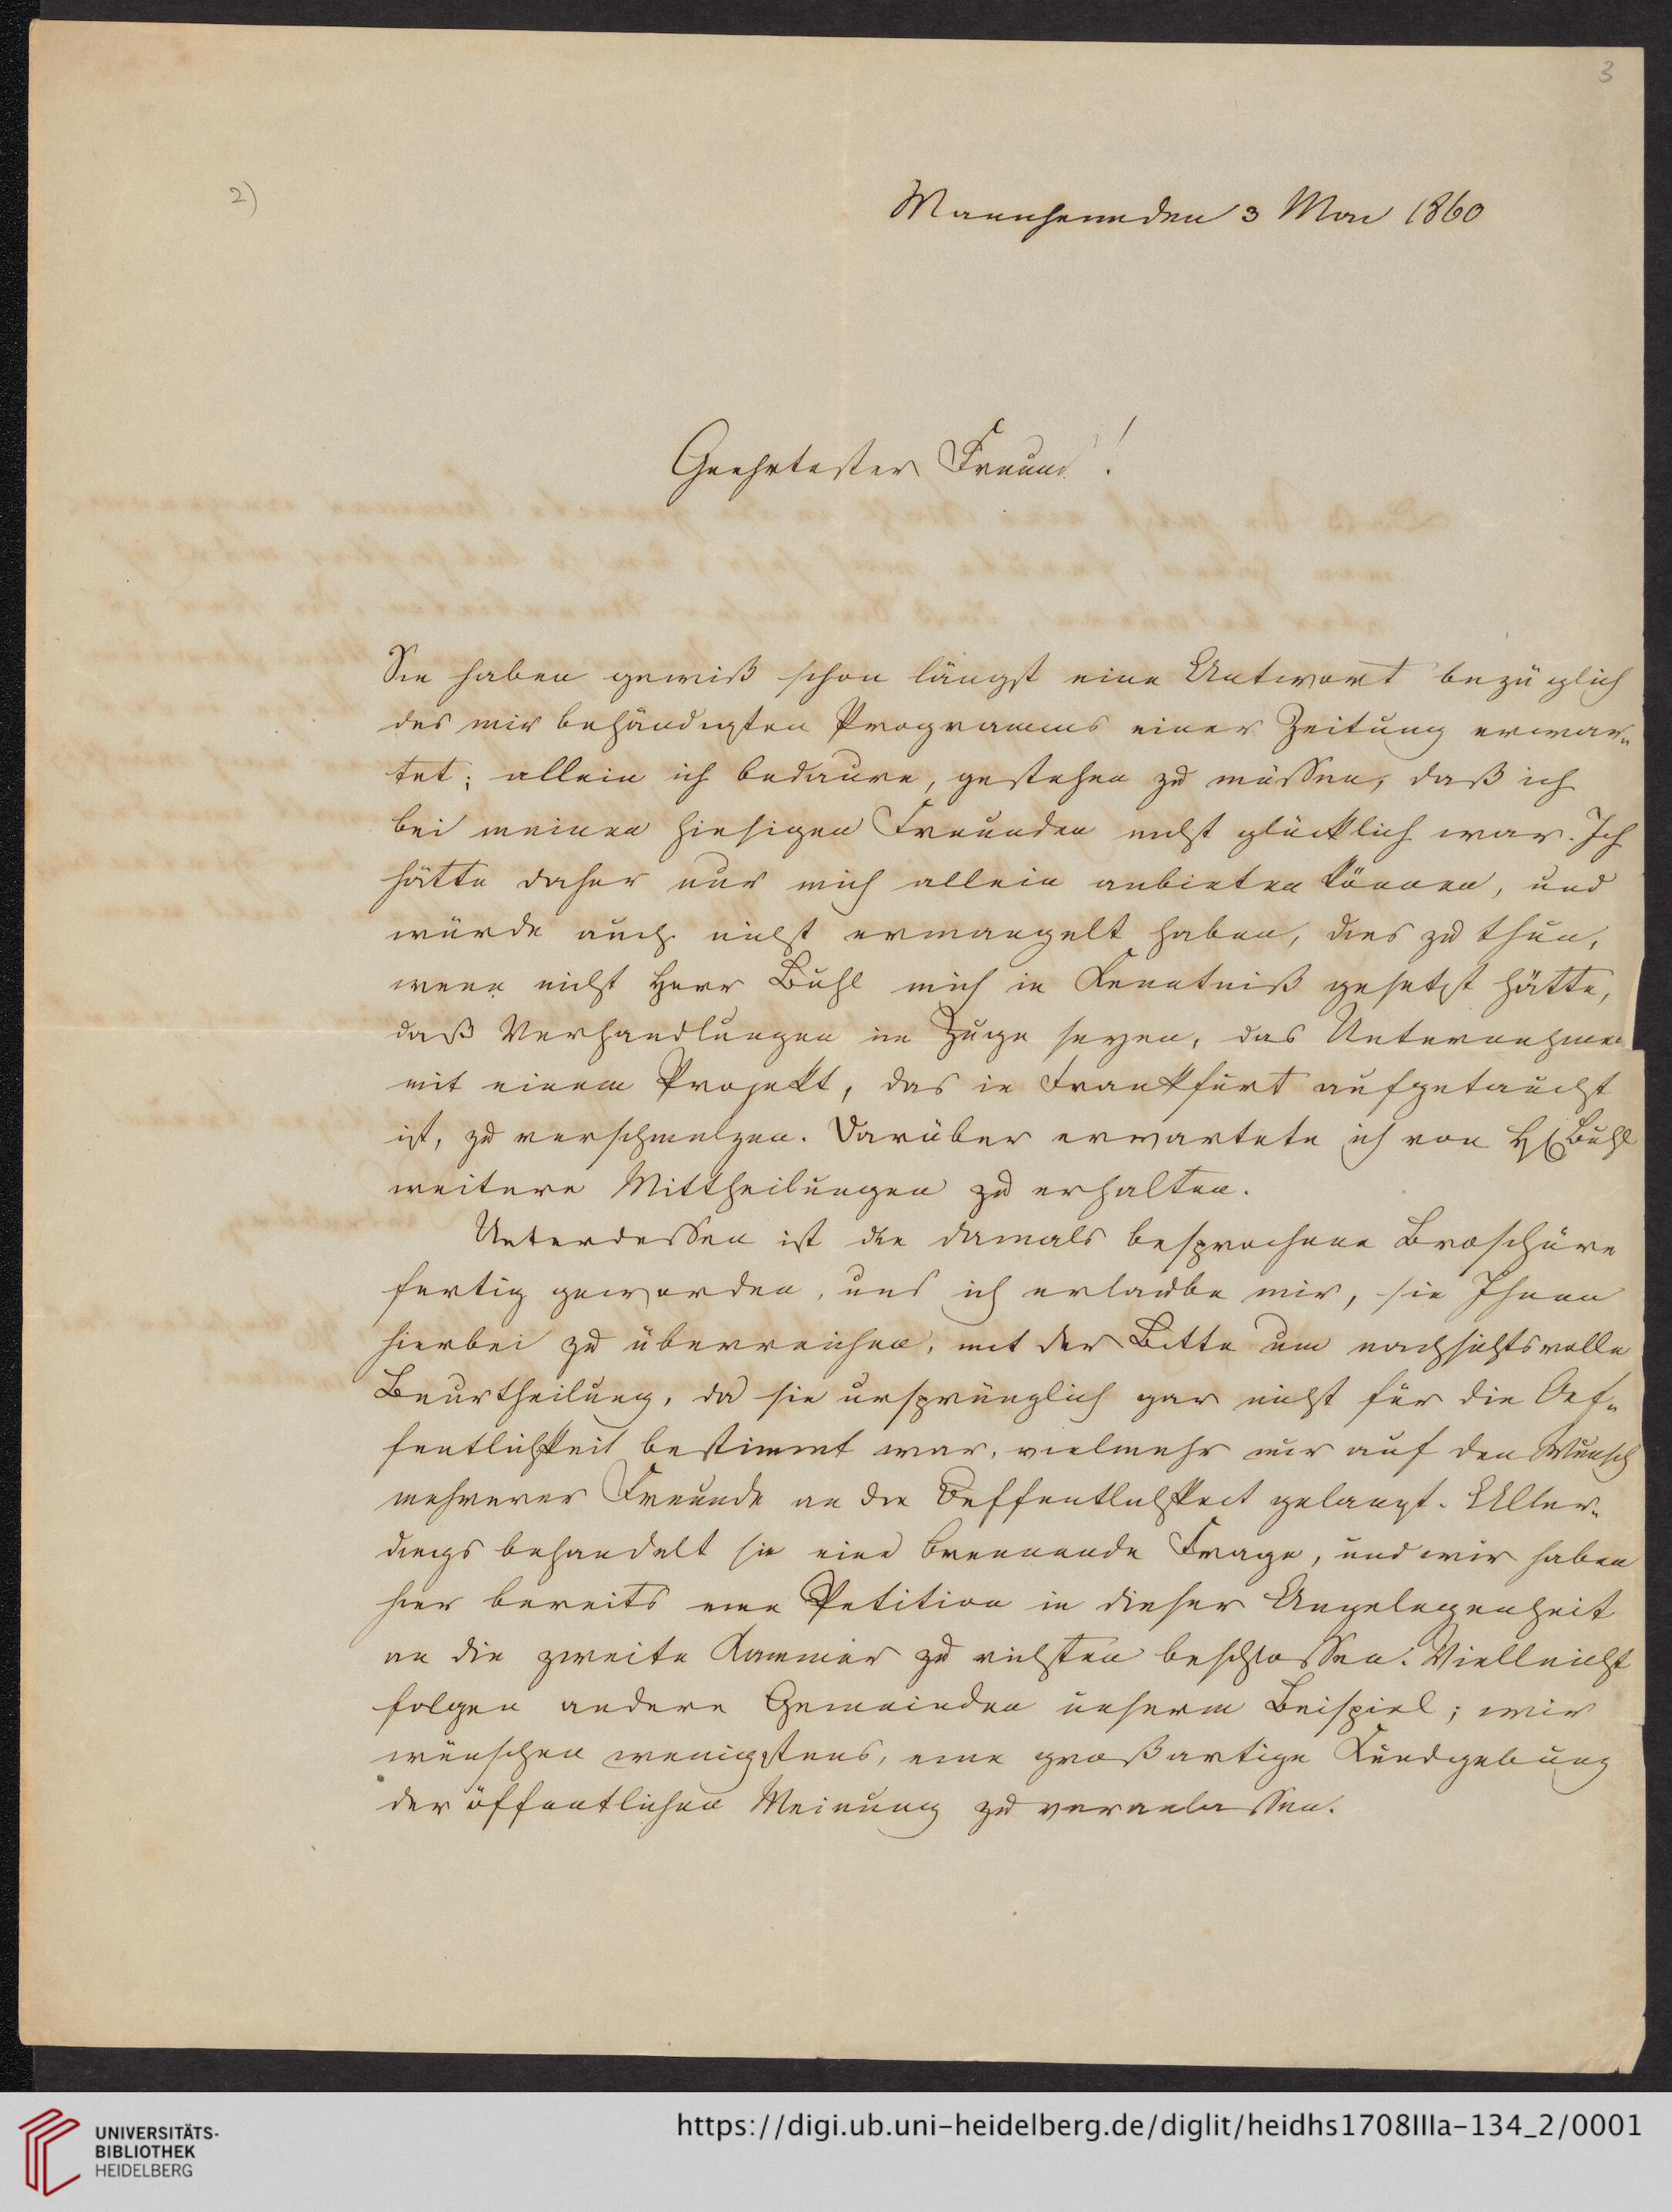 3
2)
Mannheim den 3 Mai 1860
Geehrtester Freund!
Sie haben gewiß schon längst eine Antwort bezüglich
des mir behändigten Programms einer Zeitung erwar-
tet; allein ich bedaure, gestehen zu müssen, daß ich
bei meinen hiesigen Freunden nicht glücklich war. Ich
hätte daher nur mich allein anbieten können, und
würde auch nicht ermangelt haben, dies zu thun,
wenn nicht Herr Buhl mich in Kenntniß gesetzt hätte,
daß Verhandlungen im Zuge seyen, das Unternehmen
mit einem Projekt, das in Frankfurt aufgetaucht
ist, zu verschmelzen. Darüber erwartete ich von H Buhl
weitere Mittheilungen zu erhalten.
Unterdessen ist die damals besprochene Broschüre
fertig geworden, und ich erlaube mir, sie Ihnen
hierbei zu überreichen, mit der Bitte um nachsichtsvolle
Beurtheilung, da sie ursprünglich gar nicht für die Oef-
fentlichkeit bestimmt war, vielmehr nur auf den Wunsch
mehrerer Freunde an die Oeffentlichkeit gelangt. Aller-
dings behandelt sie eine brennende Frage, und wir haben
hier bereits eine Petition in dieser Angelegenheit
an die zweite Kammer zu richten beschlossen. Vielleicht
folgen andere Gemeinden unserm Beispiel; wir
wünschen wenigstens, eine großartige Kundgebung
der öffentlichen Meinung zu veranlassen.
UNIVERSITÄTS-
BIBLIOTHEK
HEIDELBERG
https://digi.ub.uni-heidelberg.de/diglit/heidhs1708IIIa-134_2/0001